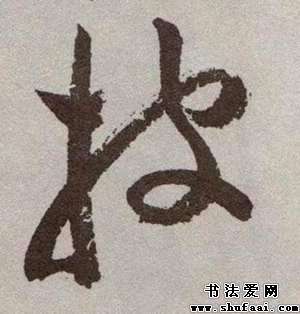 披
书法爱网
www.shufaai.com